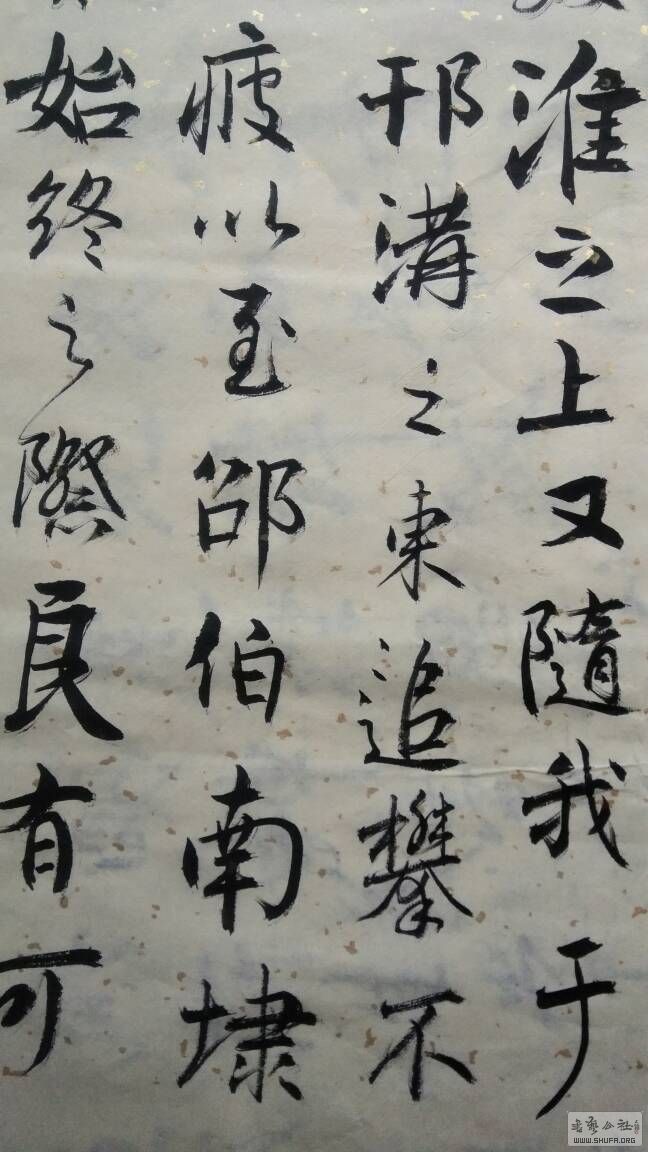 淮之上又隨我于
邗溝之東追攀不
疲以至邵伯南埭
始終之際良有可
書藝公社
WWW.SHUFA.ORG